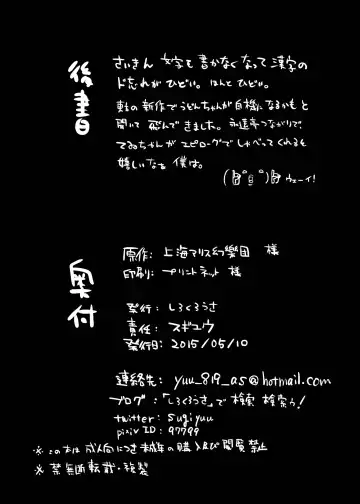 後書
さいきん文字を書かなくなって漢字の
ド忘れがひどい。ほんとひどい。
東方の新作でうどんちゃんが自機になるかもと
聞いて飛んできました。永遠亭つながりで、
てゐちゃんがエピローグでしゃべってくれると
嬉しいなぁ僕は。
ウェーイ!
奥付
原作: 上海アリス幻樂団 様
印刷: プリントネット 様
発行: しろくろうさ
責任: スギユウ
発行日: 2015/05/10
連絡先: yuu_819_a5@hotmail.com
ブログ: 「しろくろうさ」で検索検索ゥ!
twitter: sugiyuu
pixiv ID: 97799
※この本は成人向につき未成年の購入及び閲覧禁止
※禁無断転載・複製